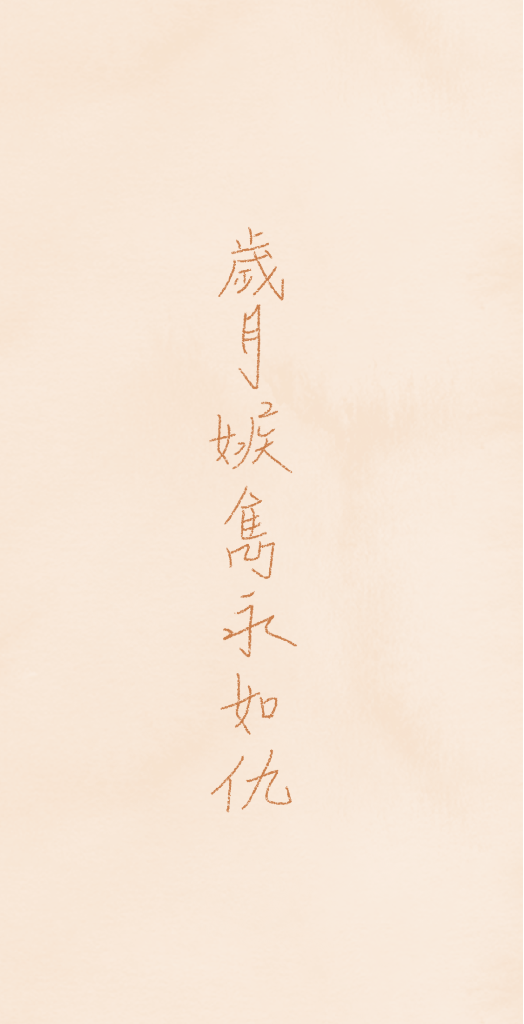 歲月嫉雋永如仇